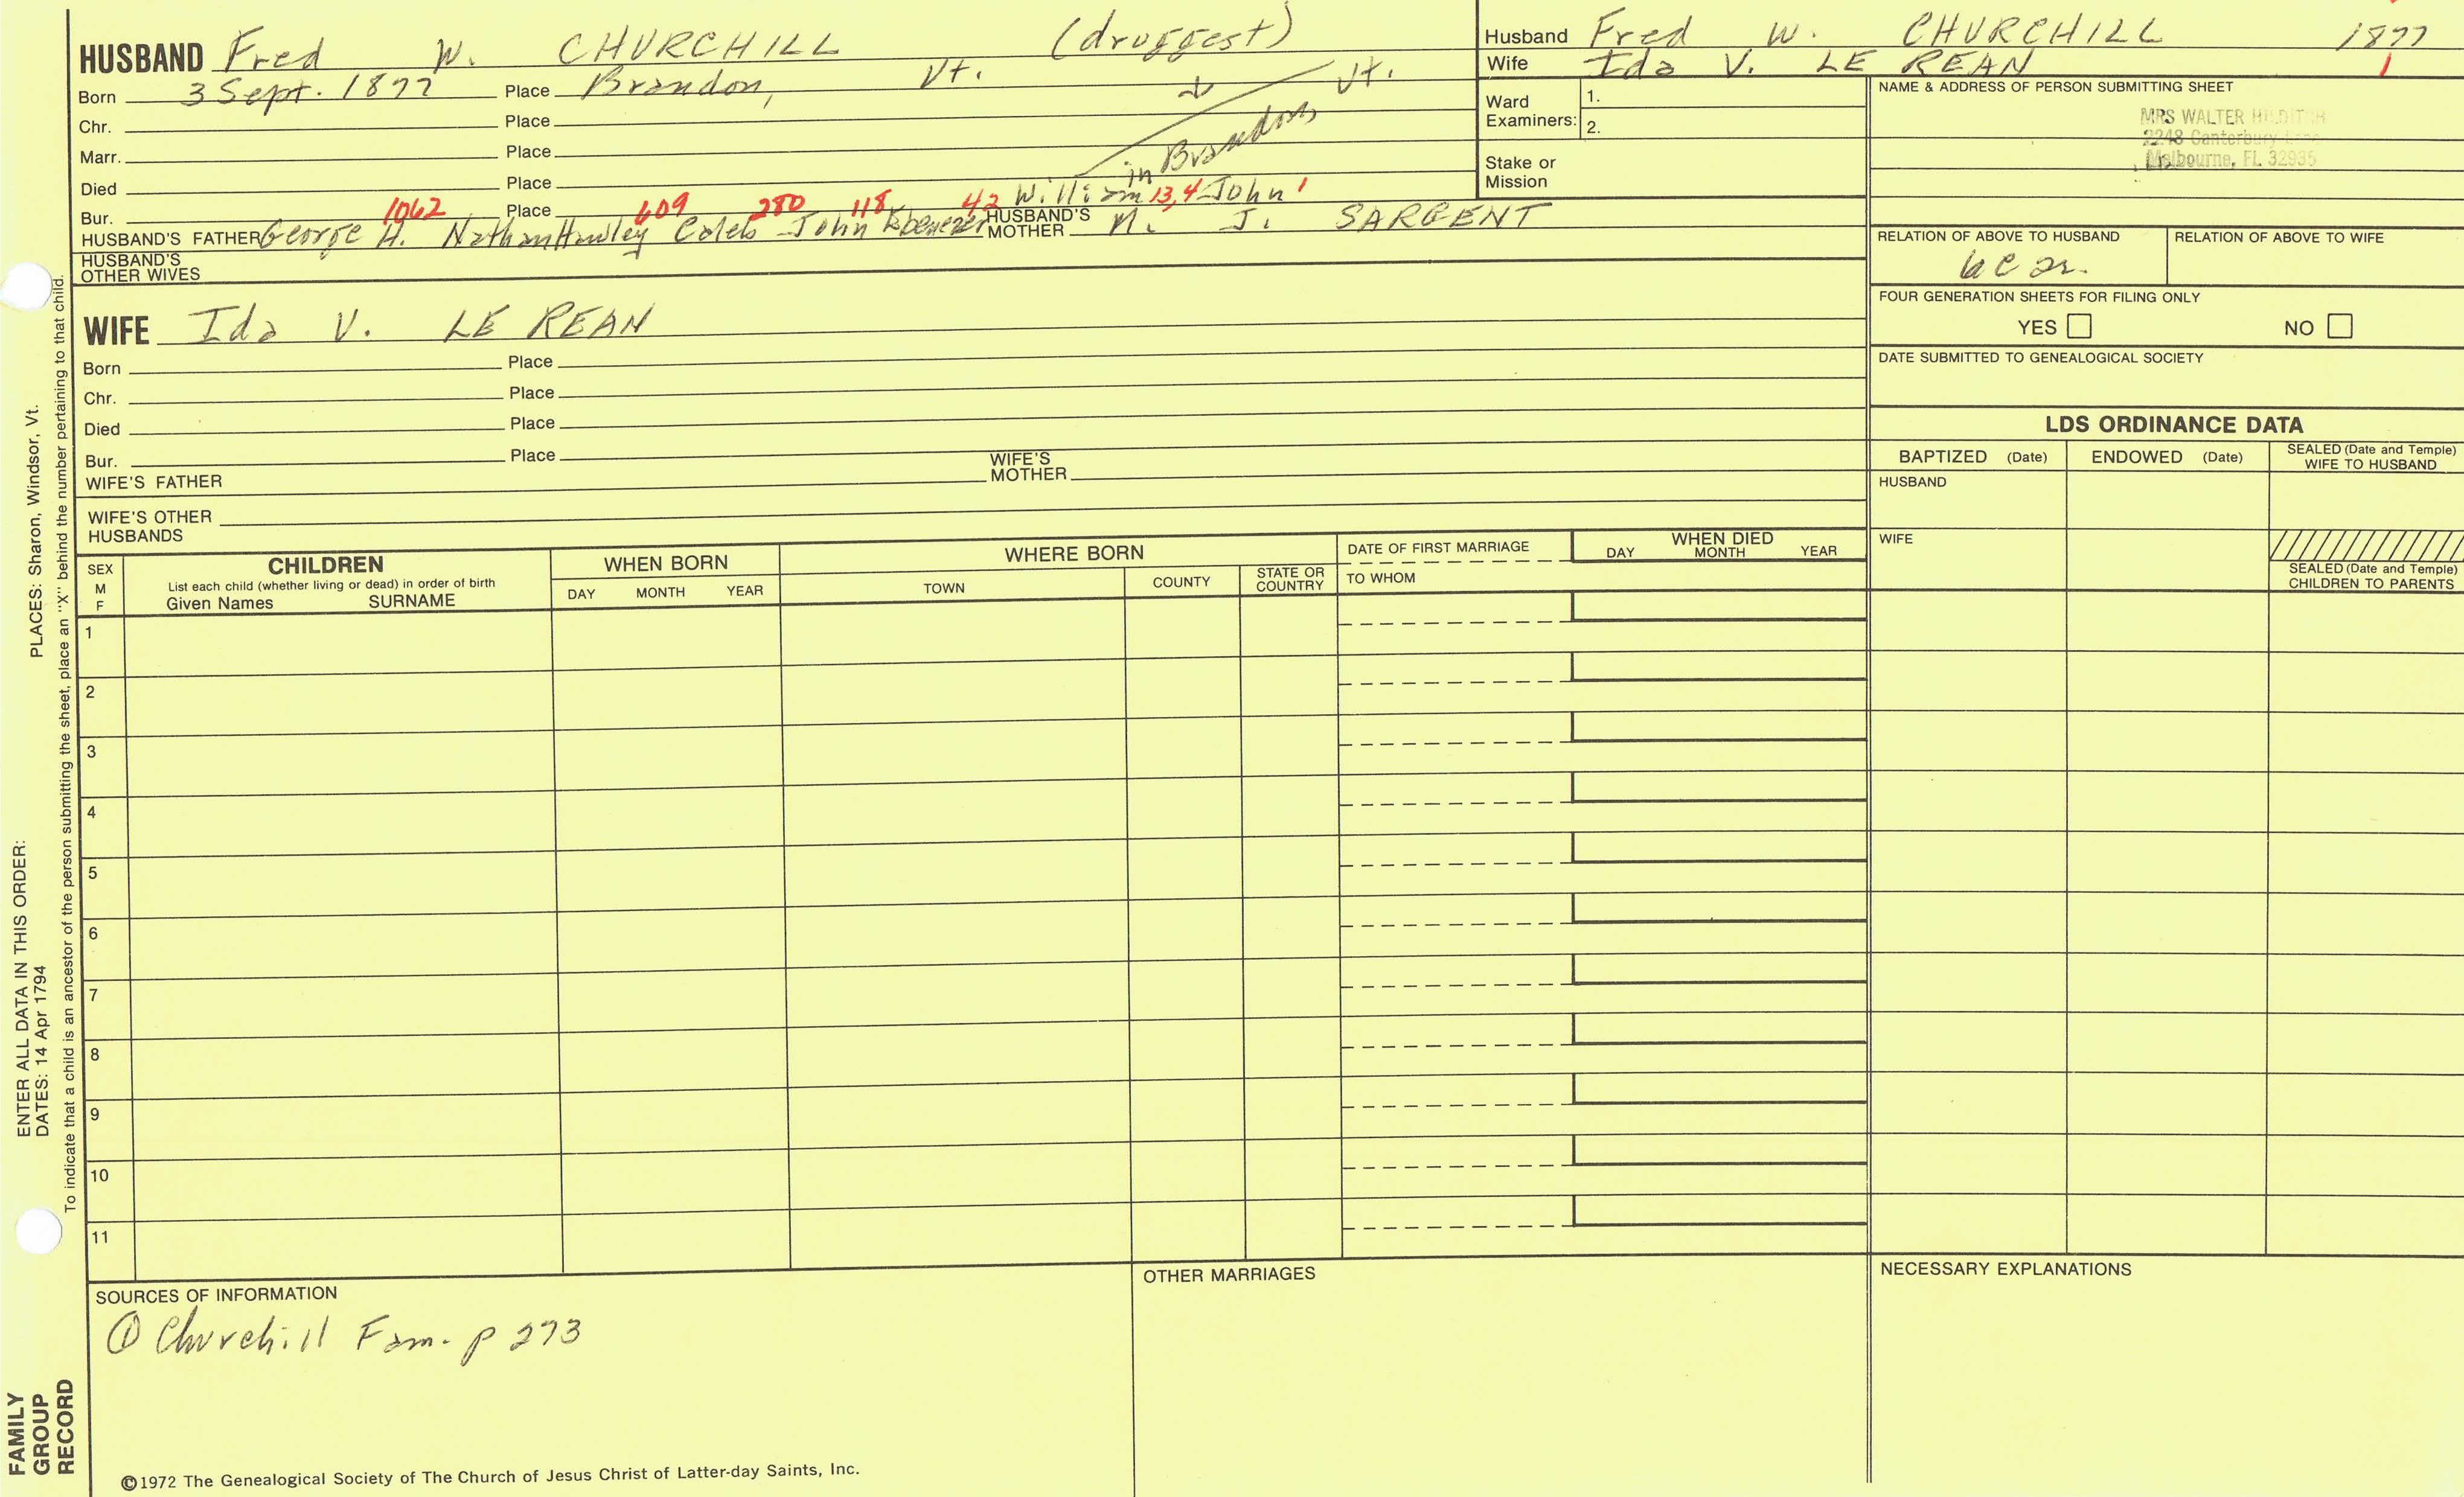 HUSBAND Fred W. CHURCHILL (druggest)
Born 3 Sept. 1877 Place Brandon, Vt.
in Brandon, Vt.
Chr. Place
Marr. Place
Died Place
Bur. Place
1062 609 280 118 42 William 13,4 John 1
HUSBAND'S FATHER George H. Nathan Hawley Caleb John Ebenezer HUSBAND'S MOTHER N. J. SARGENT
HUSBAND'S OTHER WIVES
WIFE Ida V. LE REAN
Born Place
Chr. Place
Died Place
Bur. Place
WIFE'S FATHER WIFE'S MOTHER
WIFE'S OTHER HUSBANDS
Husband Fred W. CHURCHILL 1877
Wife Ida V. LE REAN 1
Ward Examiners: 1.
2.
Stake or Mission
NAME & ADDRESS OF PERSON SUBMITTING SHEET
MRS WALTER
2248 Canterbury
Melbourne, FL 32935
RELATION OF ABOVE TO HUSBAND RELATION OF ABOVE TO WIFE
FOUR GENERATION SHEETS FOR FILING ONLY
YES NO
DATE SUBMITTED TO GENEALOGICAL SOCIETY
LDS ORDINANCE DATA
BAPTIZED (Date) ENDOWED (Date) SEALED (Date and Temple) WIFE TO HUSBAND
HUSBAND
WIFE
SEALED (Date and Temple) CHILDREN TO PARENTS
SEX M F
CHILDREN
List each child (whether living or dead) in order of birth
Given Names SURNAME
WHEN BORN
DAY MONTH YEAR
WHERE BORN
TOWN COUNTY STATE OR COUNTRY
DATE OF FIRST MARRIAGE
TO WHOM
WHEN DIED
DAY MONTH YEAR
1
2
3
4
5
6
7
8
9
10
11
SOURCES OF INFORMATION
① Churchill Fam. p 273
OTHER MARRIAGES
NECESSARY EXPLANATIONS
©1972 The Genealogical Society of The Church of Jesus Christ of Latter-day Saints, Inc.
FAMILY GROUP RECORD
ENTER ALL DATA IN THIS ORDER:
DATES: 14 Apr 1794 PLACES: Sharon, Windsor, Vt.
To indicate that a child is an ancestor of the person submitting the sheet, place an "X" behind the number pertaining to that child.